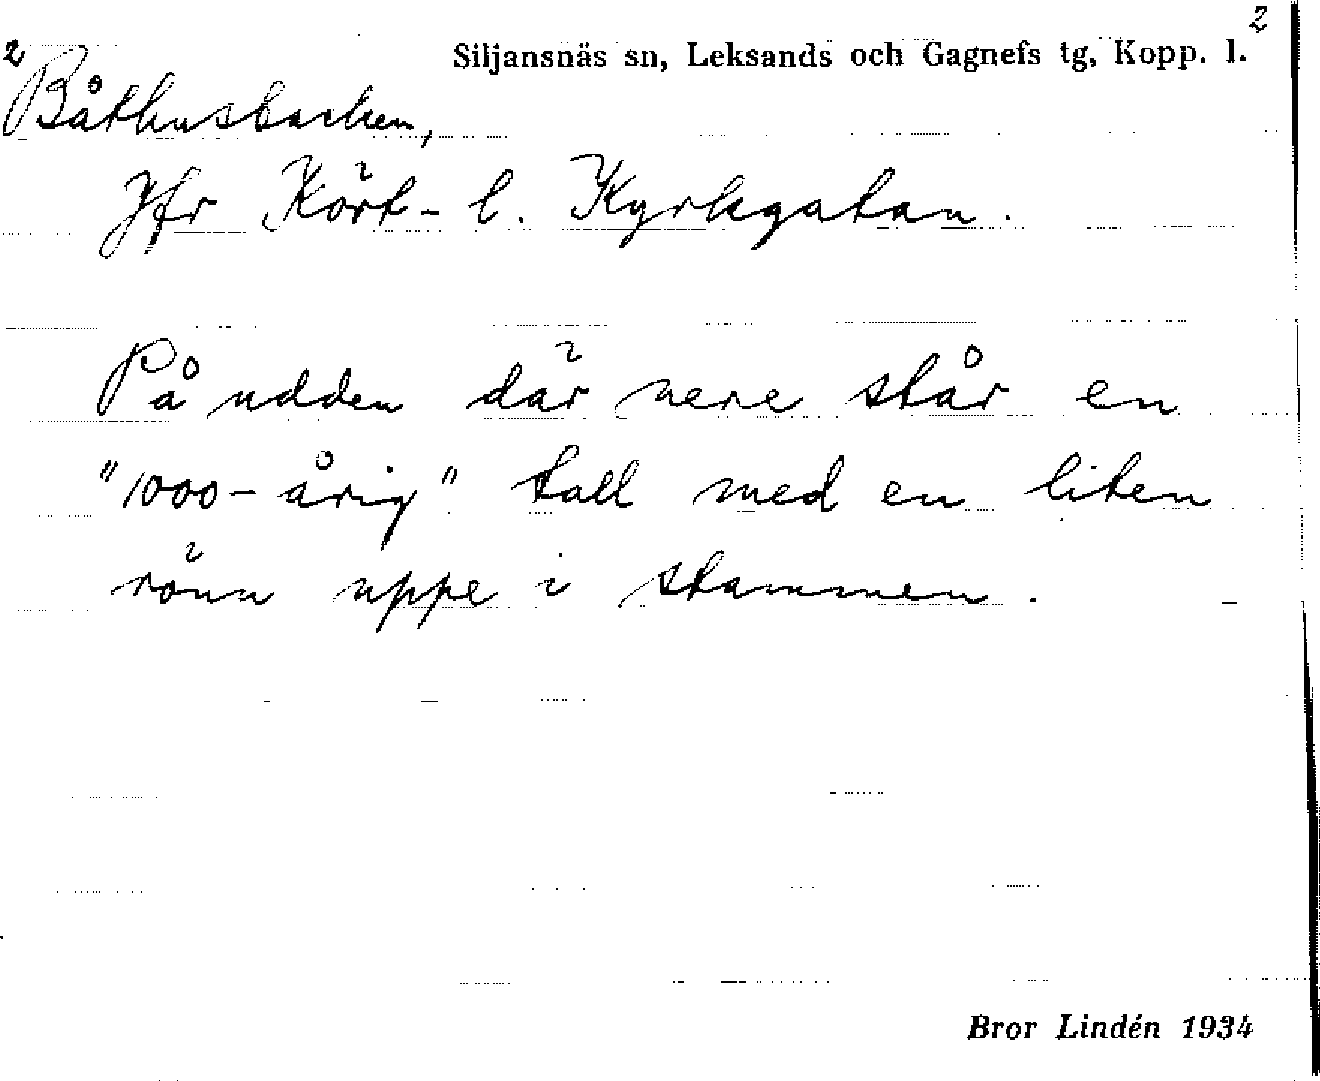 2
2 Siljansnäs sn, Leksands och Gagnefs tg, Kopp. l.
Båthusbacken,
Jfr Kört- l. Kyrkgatan.
På udden där nere står en
"1000-årig" tall med en liten
rönn uppe i stammen.
Bror Lindén 1934